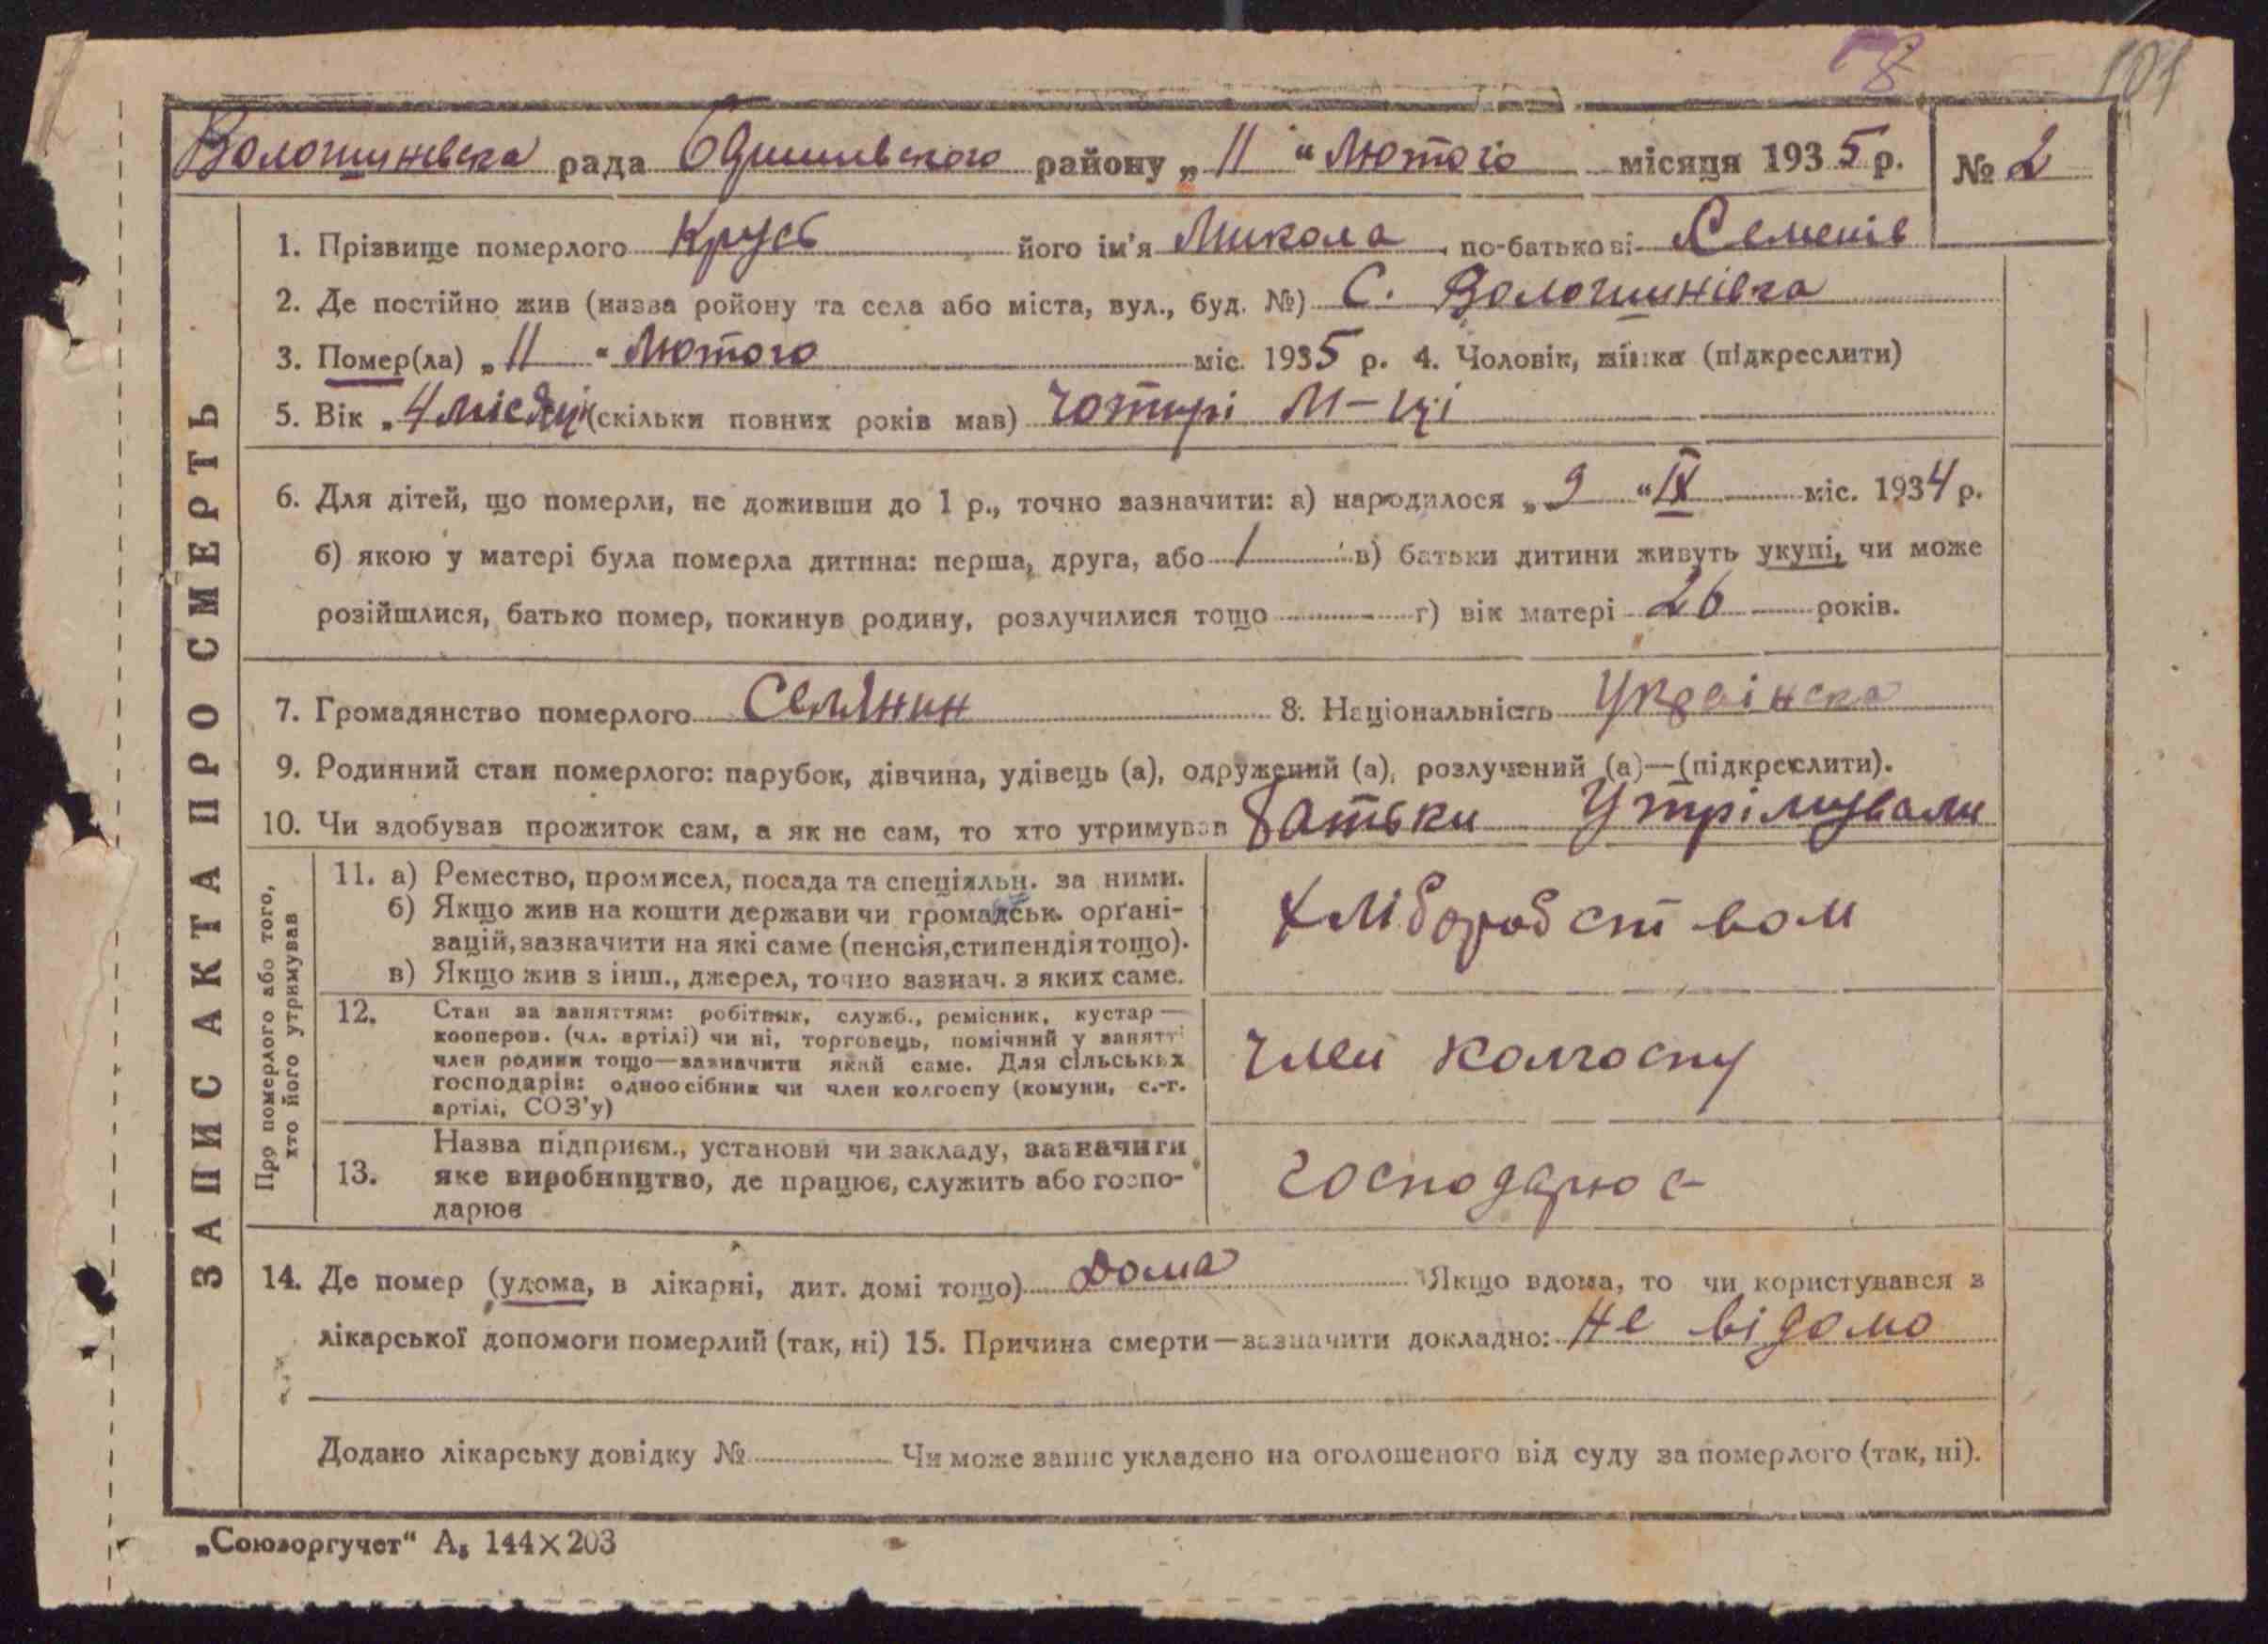 58 101
Волошинівська рада Бришивского району „ 11 “ Лютого місяця 1935 р. № 2
1. Прізвище померлого Крусь його ім'я Микола по-батькові Семенів
2. Де постійно жив (назва ройону та села або міста, вул., буд. №) С. Волошинівка
3. Помер(ла) „ 11 “ Лютого міс. 1935 р. 4. Чоловік, жінка (підкреслити)
5. Вік „ 4 місяці (скільки повних років мав) чотирі м-ці
6. Для дітей, що померли, не доживши до 1 р., точно зазначити: а) народилося „ 9 “ IX міс. 1934 р.
б) якою у матері була померла дитина: перша, друга, або 1 в) батьки дитини живуть укупі, чи може
розійшлися, батько помер, покинув родину, розлучилися тощо г) вік матері 26 років.
7. Громадянство померлого Селянин 8. Національність Українска
9. Родинний стан померлого: парубок, дівчина, удівець (а), одружений (а), розлучений (а)—(підкреслити).
10. Чи здобував прожиток сам, а як не сам, то хто утримував батьки утрімували
ЗАПИС АКТА ПРО СМЕРТЬ
Про померлого або того,
хто його утримував
11. а) Ремество, промисел, посада та спеціяльн. за ними.
б) Якщо жив на кошти держави чи громадськ. органі-
зацій, зазначити на які саме (пенсія, стипендія тощо).
в) Якщо жив з інш., джерел, точно зазнач. з яких саме.
хліборобством
12. Стан за заняттям: робітник, служб., ремісник, кустар—
кооперов. (чл. артілі) чи ні, торговець, помічний у занятті
член родини тощо—зазначити який саме. Для сільських
господарів: одноосібник чи член колгоспу (комуни, с.-г.
артілі, СОЗ'у)
член колгоспу
13. Назва підприєм., установи чи закладу, зазначити
яке виробництво, де працює, служить або госпо-
дарює
господарює
14. Де помер (удома, в лікарні, дит. домі тощо) Дома Якщо вдома, то чи користувався з
лікарської допомоги померлий (так, ні) 15. Причина смерти—зазначити докладно: Не відомо
Додано лікарську довідку № Чи може запис укладено на оголошеного від суду за померлого (так, ні).
„Союзоргучет“ А₅ 144×203